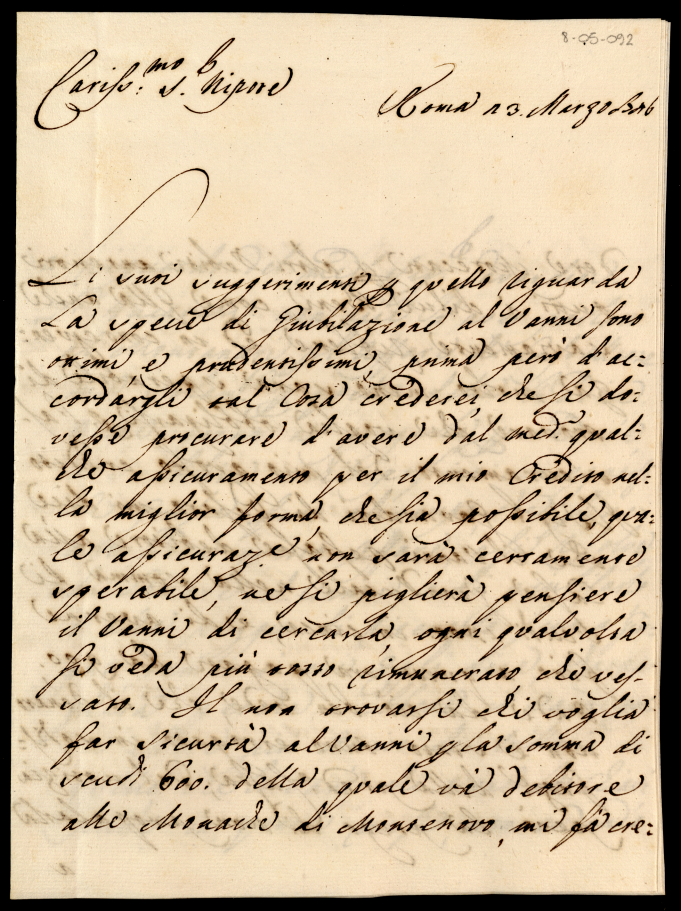 8-05-092
Cariss:mo S.r Nipote
Roma a 3. Marzo
Li suoi suggerimenti p quello riguarda
La specie di Giubilazione al Vanni sono
ottimi e prudentissimi, prima però d'ac:
cordargli tal Cosa crederei, che si do:
vesse procurare d'avere dal med.o qual:
che assicuramento per il mio Credito nel:
la miglior forma, che sia possibile, qua:
le assicuraz.e non sarà certamente
sperabile, ne si piglierà pensiere
il Vanni di cercarla, ogni qualvolta
si veda più tosto rimunerato che ves:
sato. Il non trovarsi chi voglia
far sicurtà al Vanni p la somma di
scudi 600. della quale và debitore
alle Monache di Montenovo, mi fà cre: